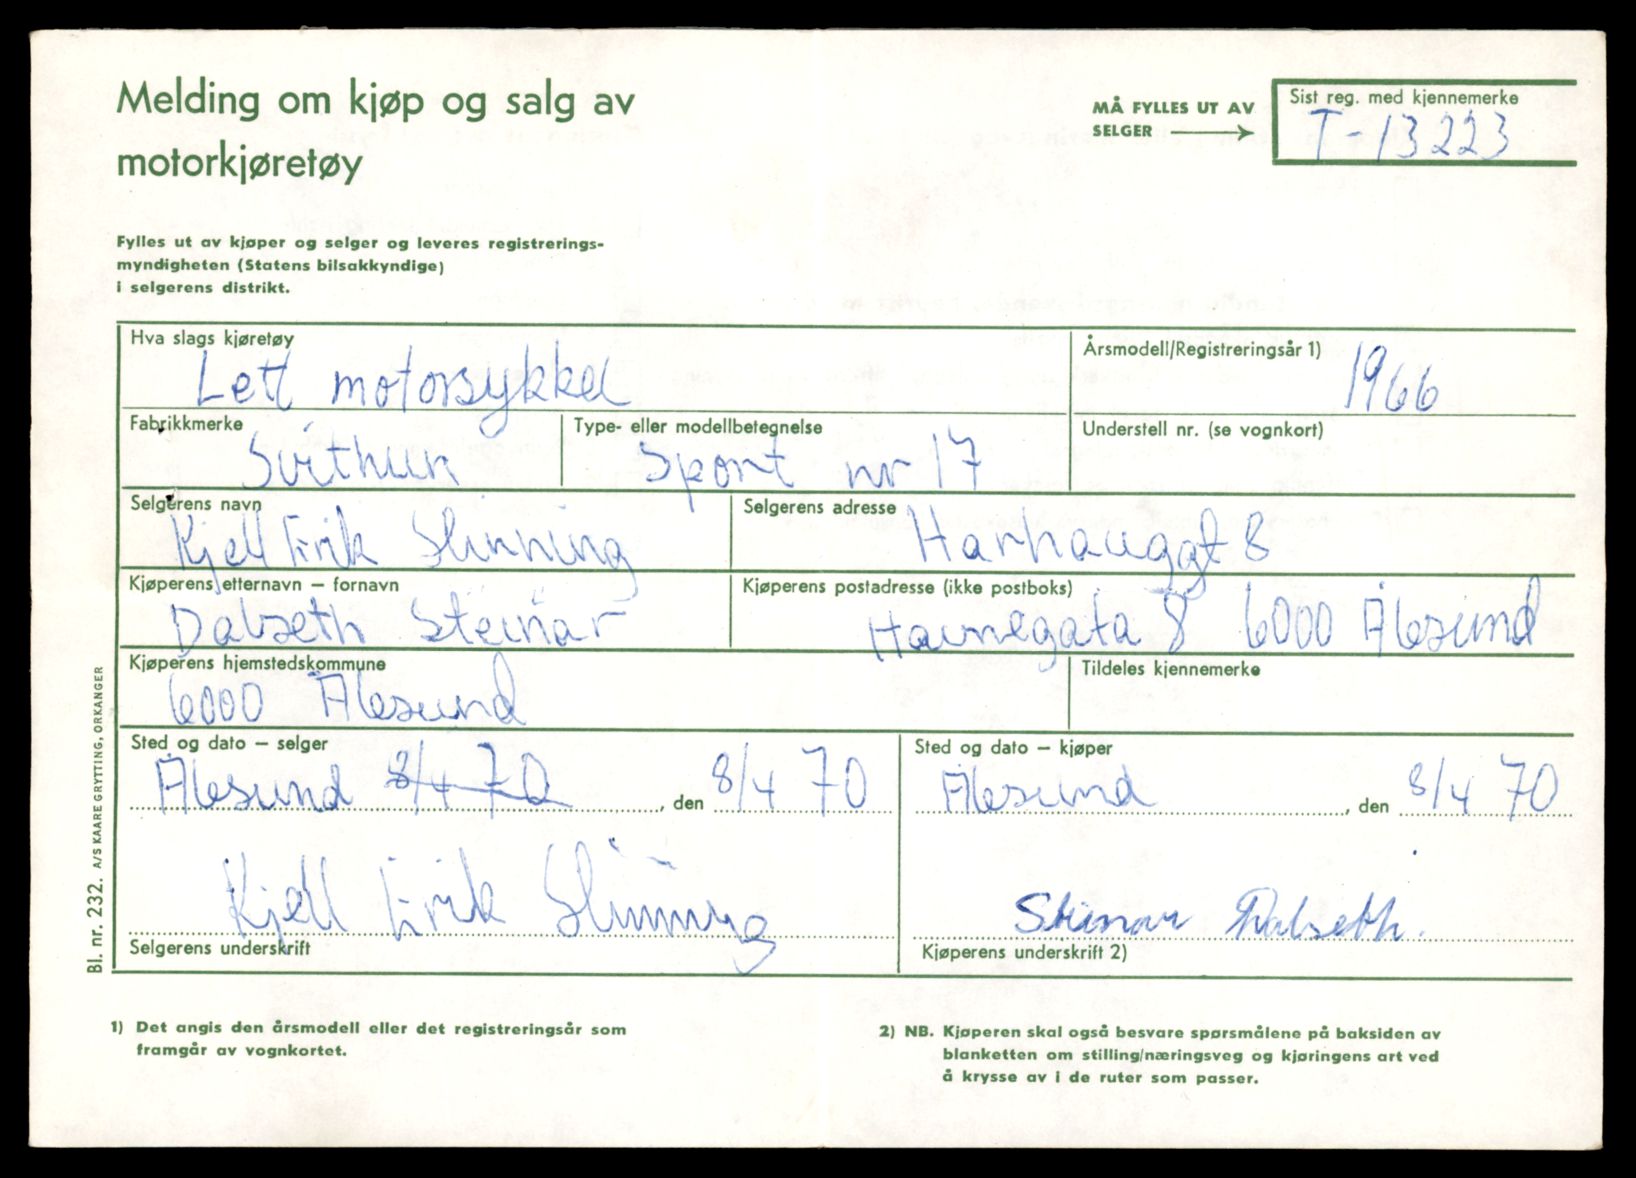 Melding om kjøp og salg av
motorkjøretøy
MÅ FYLLES UT AV
SELGER
Sist reg. med kjennemerke
T-13223
Fylles ut av kjøper og selger og leveres registrerings-
myndigheten (Statens bilsakkyndige)
i selgerens distrikt.
Hva slags kjøretøy
Lett motorsykkel
Årsmodell/Registreringsår 1)
1966
Fabrikkmerke
Svithun
Type- eller modellbetegnelse
Sport nr 17
Understell nr. (se vognkort)
Selgerens navn
Kjell Erik Slinning
Selgerens adresse
Harhauggt 8
Kjøperens etternavn – fornavn
Dalseth Steinar
Kjøperens postadresse (ikke postboks)
Havnegata 8 6000 Ålesund
Kjøperens hjemstedskommune
6000 Ålesund
Tildeles kjennemerke
Sted og dato – selger
Ålesund 8/4 70, den 8/4 70
Sted og dato – kjøper
Ålesund, den 8/4 70
Kjell Erik Slinning
Selgerens underskrift
Steinar Dalseth.
Kjøperens underskrift 2)
Bl. nr. 232. A/S KAARE GRYTTING, ORKANGER
1) Det angis den årsmodell eller det registreringsår som
framgår av vognkortet.
2) NB. Kjøperen skal også besvare spørsmålene på baksiden av
blanketten om stilling/næringsveg og kjøringens art ved
å krysse av i de ruter som passer.